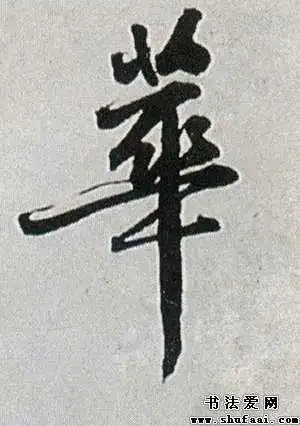 華
书法爱网
www.shufaai.com